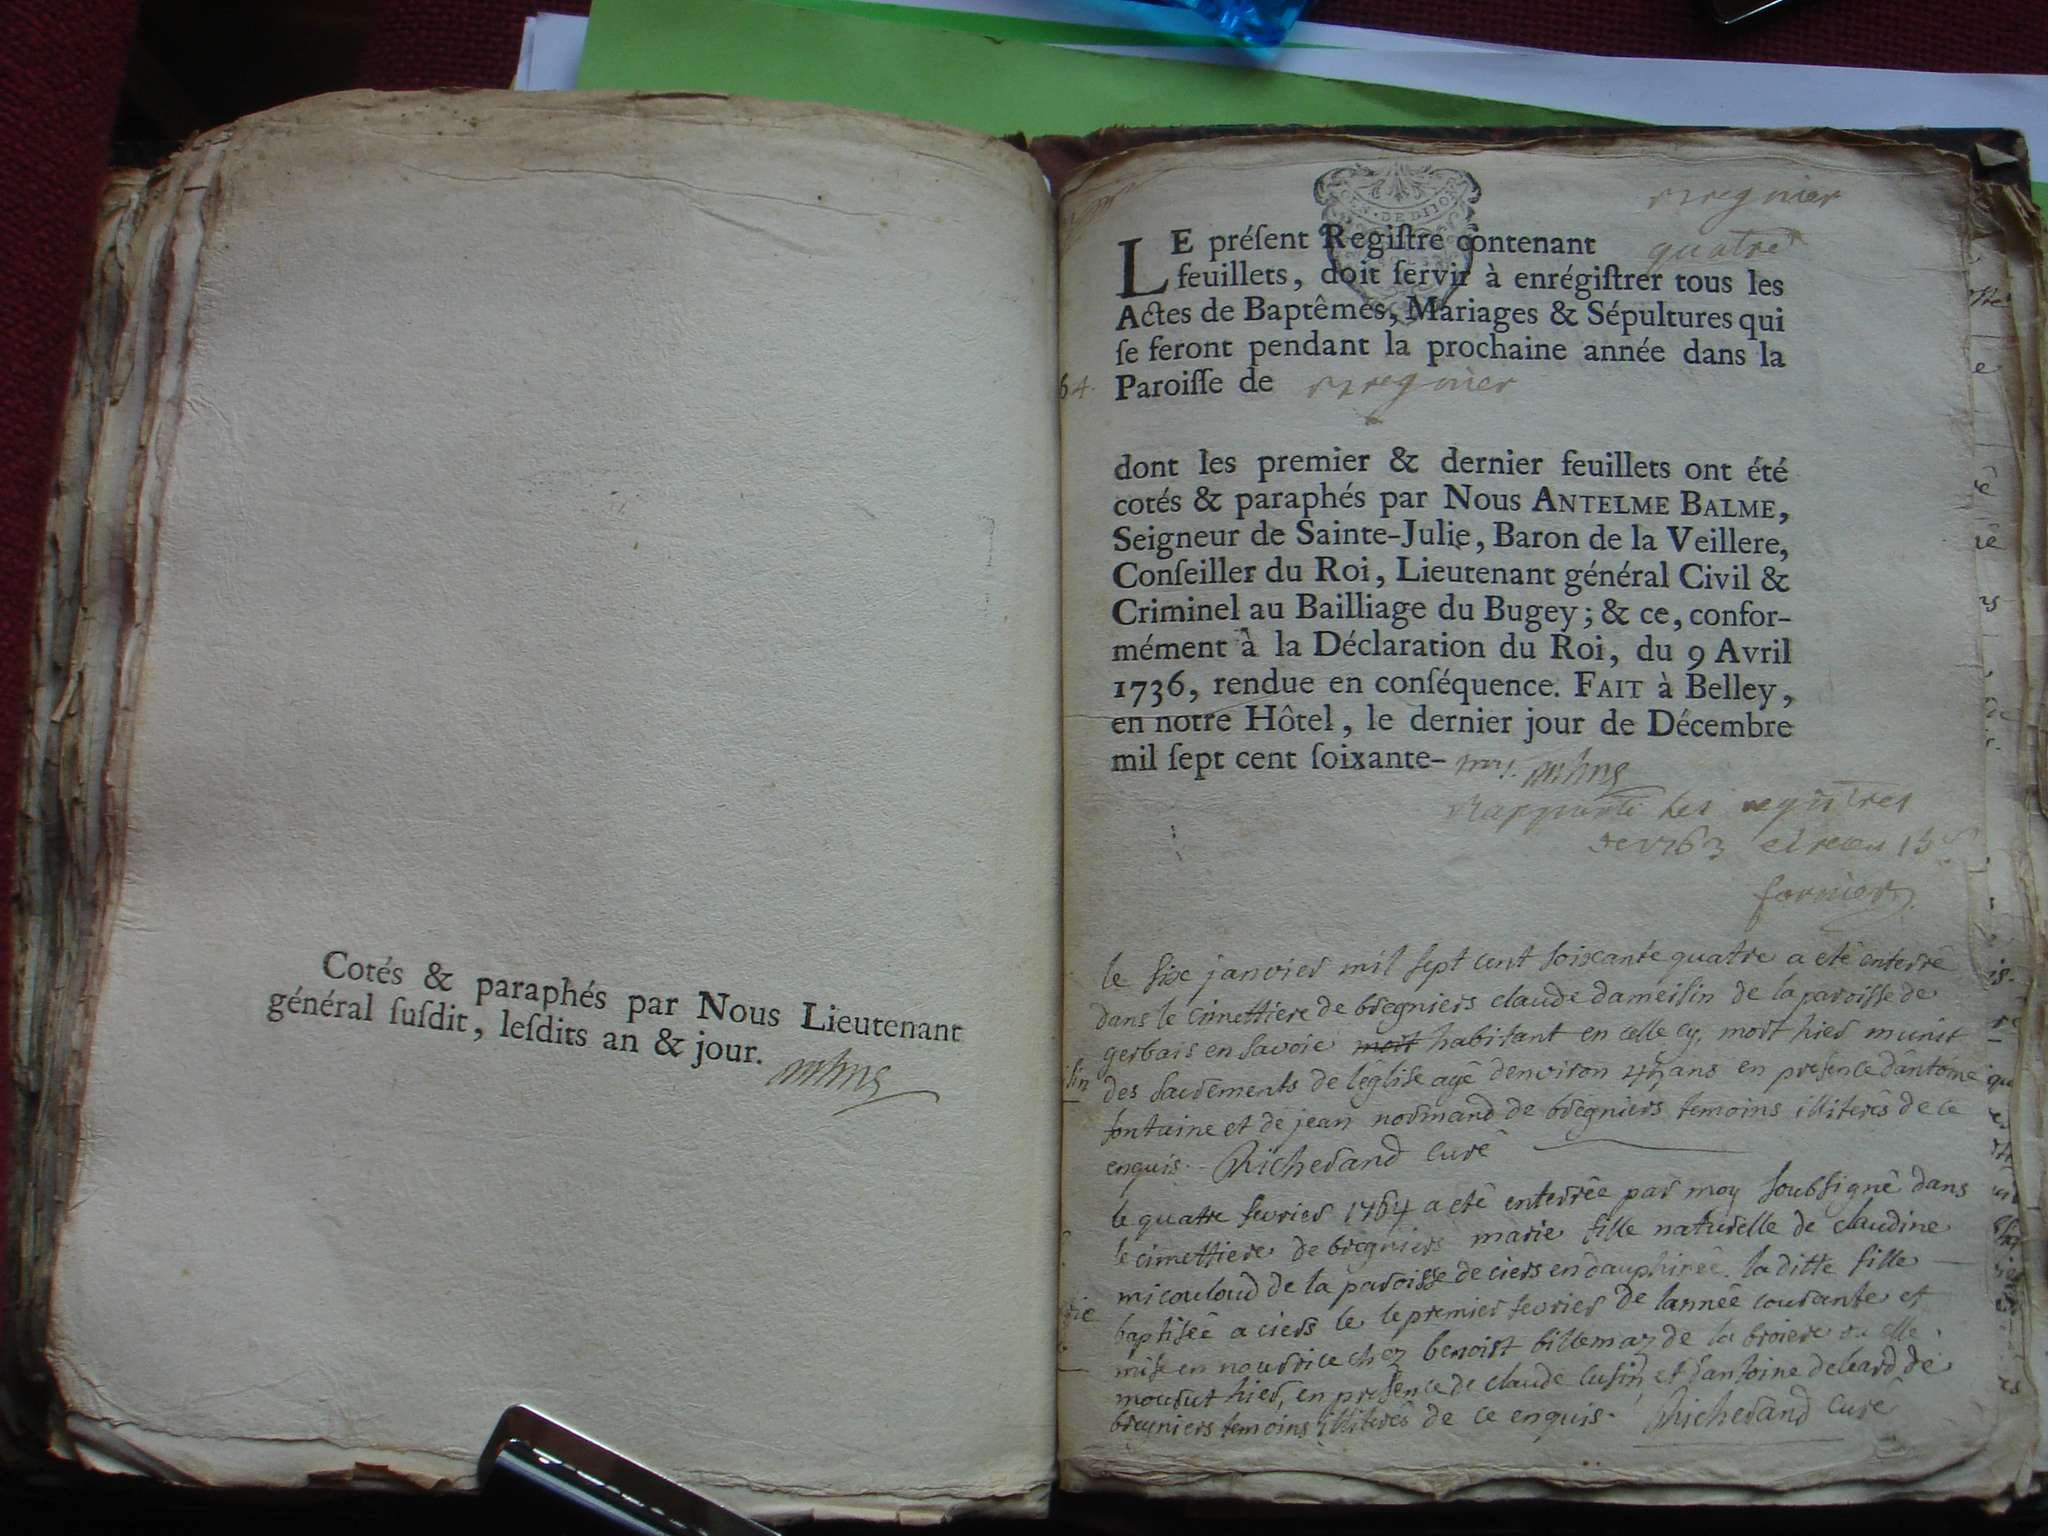 Cotés & paraphés par Nous Lieutenant
général ſuſdit, leſdits an & jour.
GEN · DE DIJON
LE préſent Regiſtre contenant quatre
feuillets, doit ſervir à enrégiſtrer tous les
Actes de Baptêmes, Mariages & Sépultures qui
ſe feront pendant la prochaine année dans la
Paroiſſe de
dont les premier & dernier feuillets ont été
cotés & paraphés par Nous ANTELME BALME,
Seigneur de Sainte-Julie, Baron de la Veillere,
Conſeiller du Roi, Lieutenant général Civil &
Criminel au Bailliage du Bugey; & ce, confor-
mément à la Déclaration du Roi, du 9 Avril
1736, rendue en conſéquence. FAIT à Belley,
en notre Hôtel, le dernier jour de Décembre
mil ſept cent ſoixante-
Rapporté les registres
de 1763 et receu 13
fornier
le six janvier mil sept cent soixante quatre a eté enterré
dans le cimettiere de brêgniers claude dameisin de la paroisse de
gerbais en savoie mort habitant en celle cy, mort hier munit
des sacrements de leglise agé denviron 45 ans en presence dantoine
fontaine et de jean normand de brêgniers temoins illiterés de ce
enquis. Richerand curé
le quatre fevrier 1764 a eté enterrée par moy soubsigné dans
le cimettiere de brêgniers marie fille naturelle de claudine
micouloud de la paroisse de ciers en dauphinée. la ditte fille
baptisée a ciers le le premier fevrier de lannée courante et
mise en nourrice chez benoist billemaz de la broiere ou elle
mourut hier, en presence de claude cusin, et dantoine debard de
bregniers temoins illiterés de ce enquis. Richerand curé